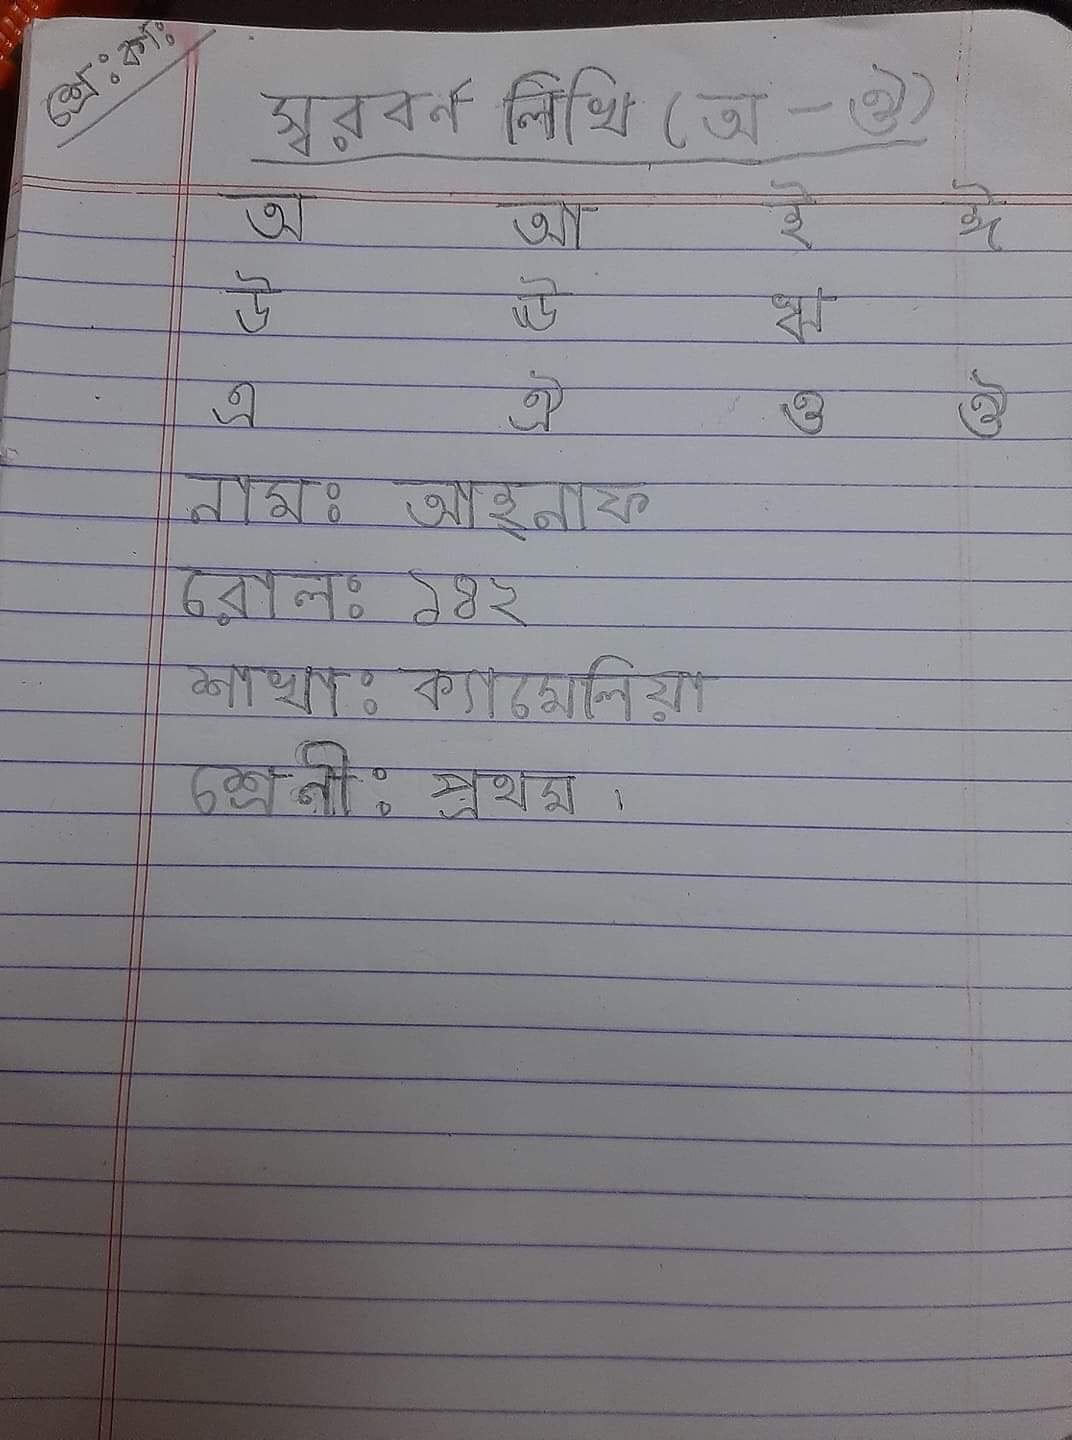 শ্রে: কা:
স্বরবর্ন লিখি (অ - ঔ)
অ আ ই ঈ
উ ঊ ঋ
এ ঐ ও ঔ
নামঃ আইনাফ
রোলঃ ১৪২
শাখাঃ ক্যামেলিয়া
শ্রেনীঃ প্রথম।